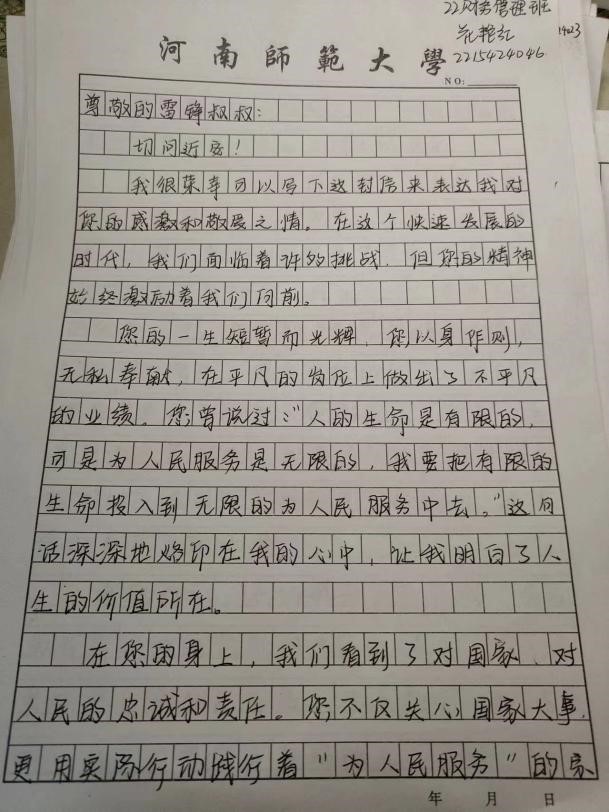 22财务管理班
花艳红 14023
河南師範大學 2215424046
NO:
尊敬的雷锋叔叔:
切问近安!
我很荣幸可以写下这封信来表达我对
您的感激和敬畏之情。在这个快速发展的
时代,我们面临着许多挑战,但您的精神
始终激励着我们向前。
您的一生短暂而光辉,您以身作则,
无私奉献,在平凡的岗位上做出了不平凡
的业绩。您曾说过:“人的生命是有限的,
可是为人民服务是无限的,我要把有限的
生命投入到无限的为人民服务中去。”这句
话深深地烙印在我的心中,让我明白了人
生的价值所在。
在您的身上,我们看到了对国家、对
人民的忠诚和责任。您不仅关心国家大事,
更用实际行动践行着“为人民服务”的宗
年 月 日